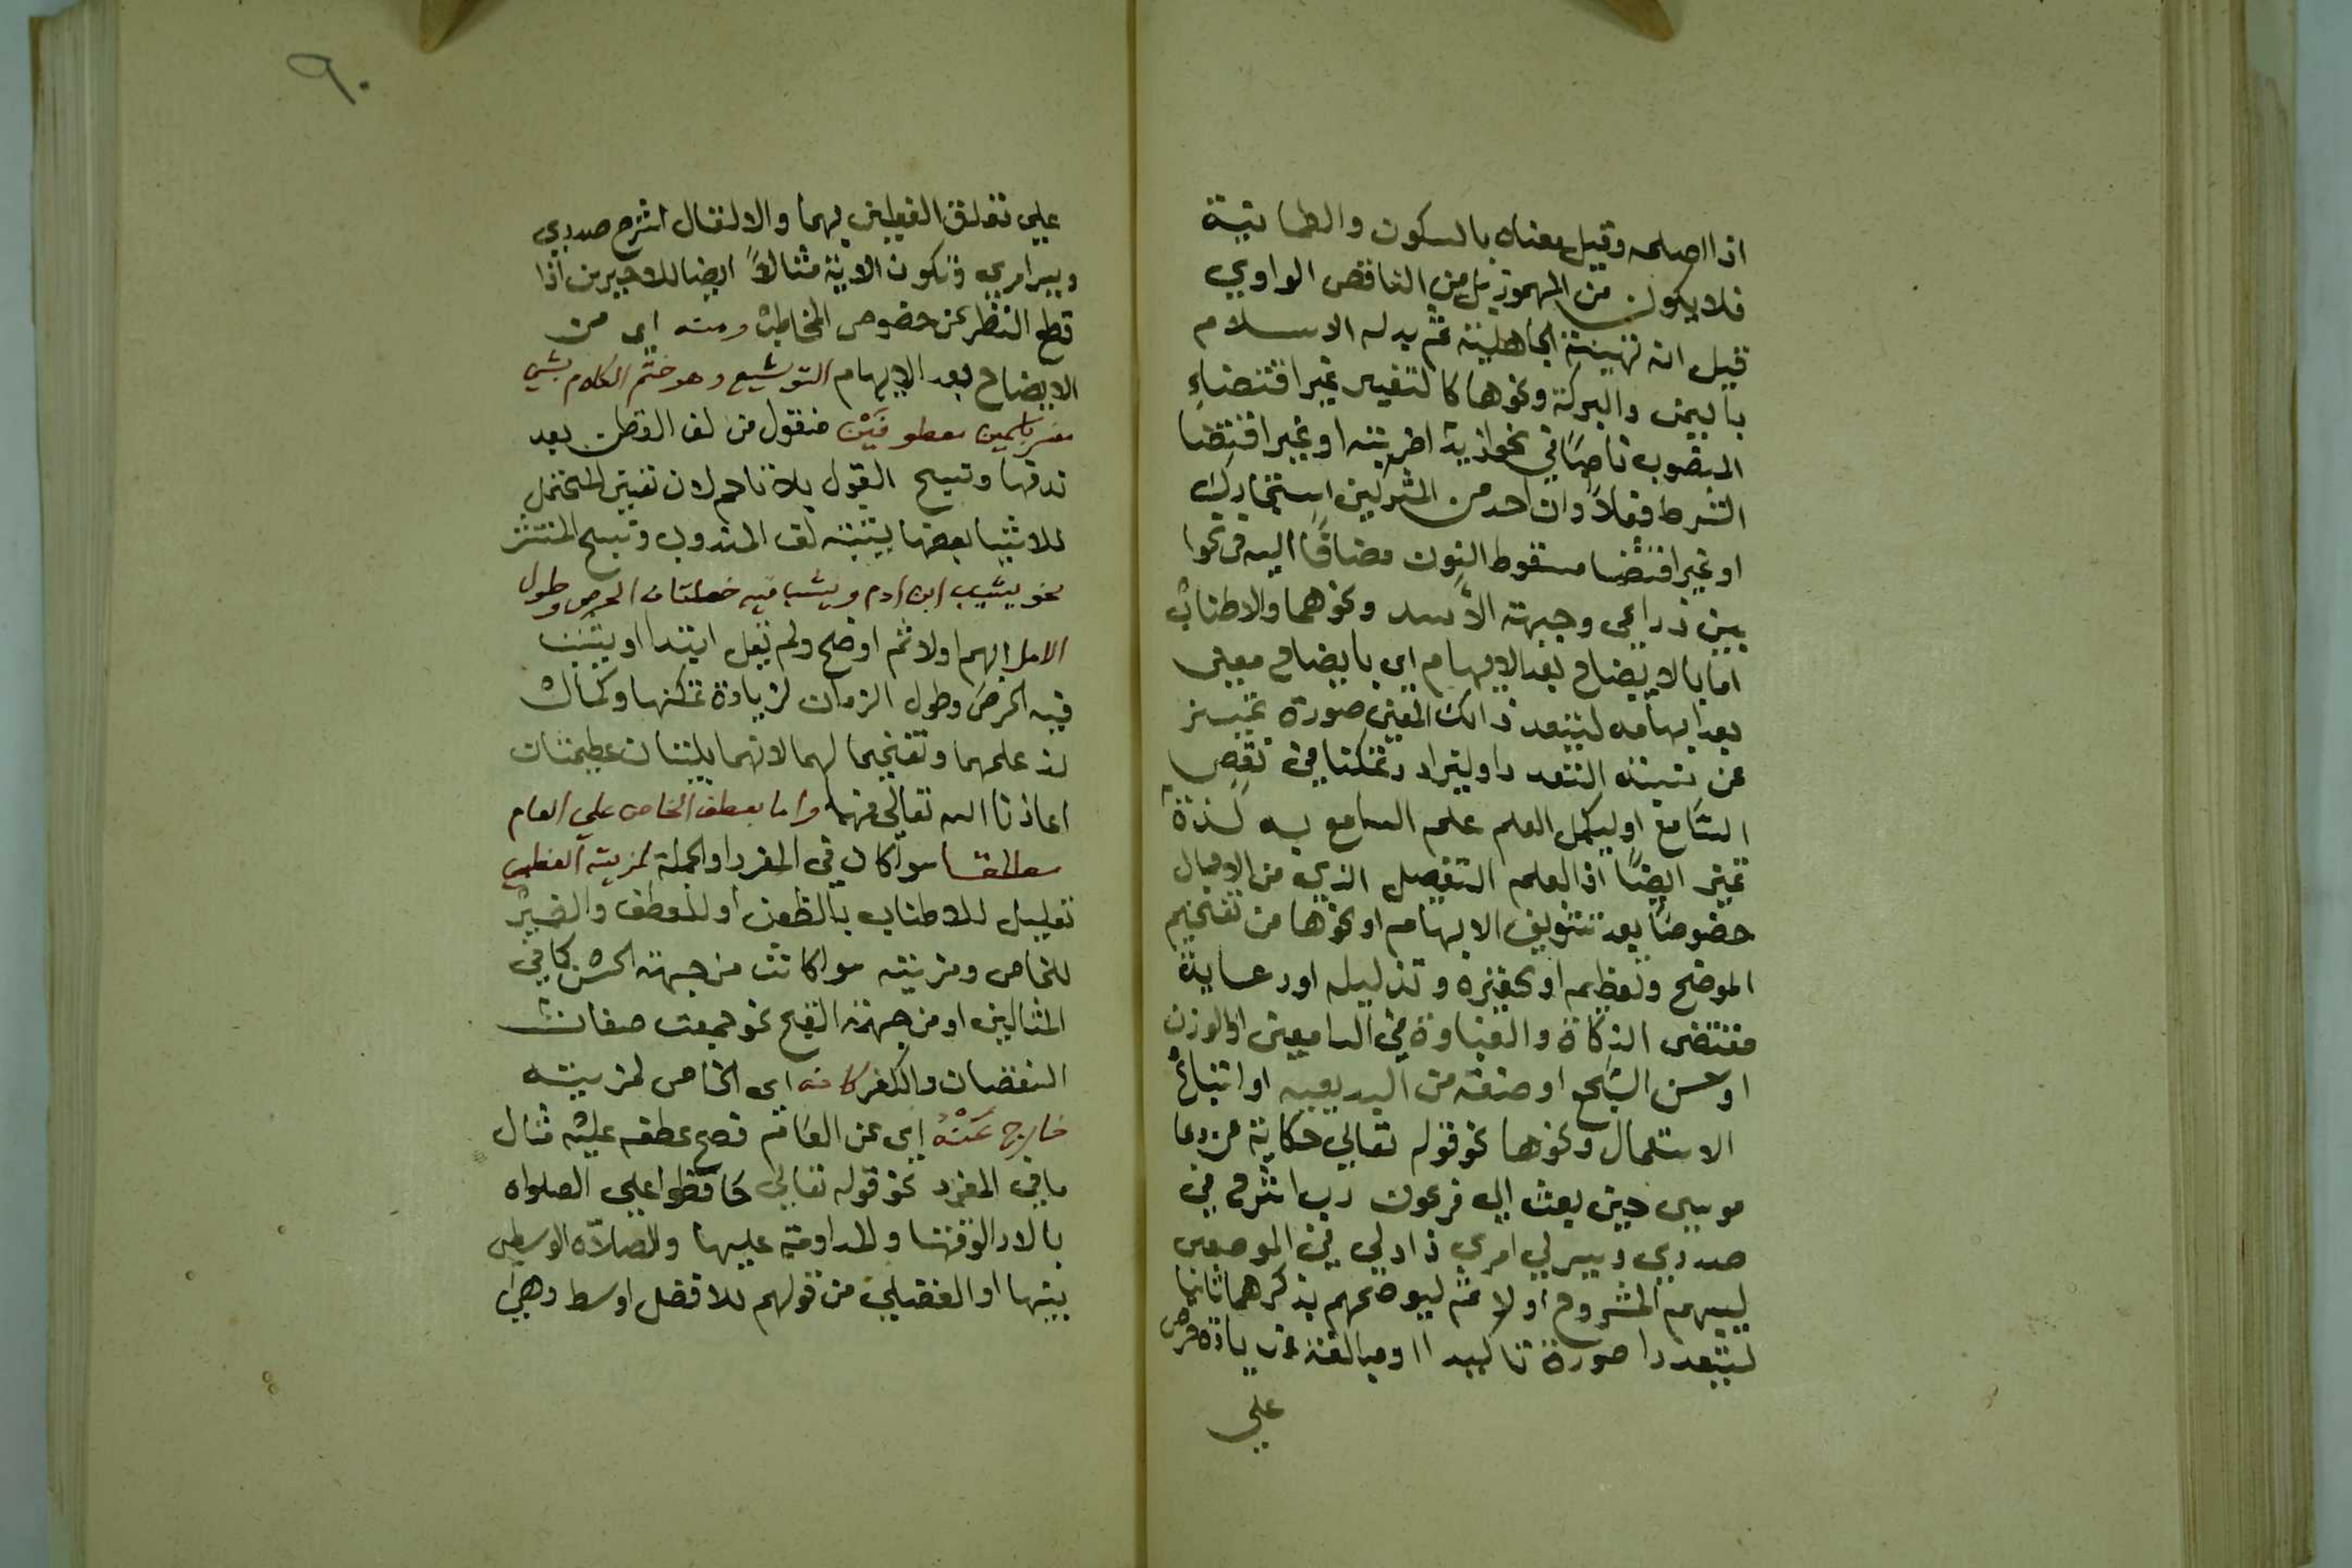 اذا اصلحه وقيل معناه بالسكون والطمانينة
فلا يكون من المهموز بل من الناقص الواوي
قيل انه تهنئة الجاهلية ثم بدله الاسلام
باليمن والبركة ونحوها كالتفسير غير اقتضاء
المنصوب ناصبًا في نحو ازيدا ضربته او غير اقتضا
الشرط فعلاً وان احد من المشركين استجارك
او غير اقتضا سقوط النون مضافًا اليه في نحوا
بين ذراعي وجبهة الأسد ونحوهما والاطناب
اما بالايضاح بعد الابهام اي بايضاح معني
بعد ابهامه ليتعدد ذالك المعني صورة
عن التعدد او ليزاد تمكنا في نفس
السَّامع او ليكمل العلم علم السامع به لذة
ايضًا اذ العلم التفصيل الذي من الاجمال
خصوصًا بعد تشويق الابهام او نحوها من تفخيم
الموضح وتعظيمه او تحقيره وتذليله او رعاية
مقتضي الذكاة والغباوة في السامعين او الوزن
او حسن السَّجع او صنعة من البديعيه او اتباع
الاستعمال ونحوها نحو قوله تعالي حكاية عن دعا
موسي حين بعث الي فرعون رب اشرح لي
صدري ويسر لي امري زاد لي في الموضعين
ليبهم المشروح اولا ثم ليوضحهم بذكرهما ثانيا
ليتعددا صورة تاكيدا او مبالغة في زيادة حرص
علي
٩٠
علي تعلق الفعلين بهما والا لقال اشرح صدري
ويسر امري فتكون الاية مثالاً ايضا للاخيرين اذا
قطع النظر عن خصوص المخاطب ومنه اي من
الايضاح بعد الابهام التوشيع وهو ختم الكلام بشي
مفسر باسمين معطوفَيْن فنقول من لف القطن بعد
ندفها القول بلا
للاشيا بعضها لف المندوب
نحو يشيب ابن ادم ويشب فيه خصلتان الحرص وطول
الامل ابهم اولا ثم اوضح ولم يقل ابتدا او يشب
فيه الحرص وطول الزمان لزيادة تمكنها وكمال
لذ علمهما وتفخيما لهما لانهما بليتان عظيمتان
اعاذنا الله تعالي منهما واما بعطف الخاص علي العام
مطلقا سوا كان في المفرد او الجملة لمزيته الفضلي
تعليل للاطناب بالظعن او للعطف والضمير
للخاص ومزيته سوا كانت من جهة الحسن كما في
المثالين او من جهة القبح نحو جمعت صفات
النقصان والكفر كانه اي الخاص لمزيته
خارج عَنْهُ اي عن العام فصح عطفه عليه مثال
ما في المفرد نحو قوله تعالي حافظوا علي الصلواه
بالادا لوقتها والمداومة عليها والصلاه الوسطي
بينها او الفضلي من قولهم للافضل اوسط وهي